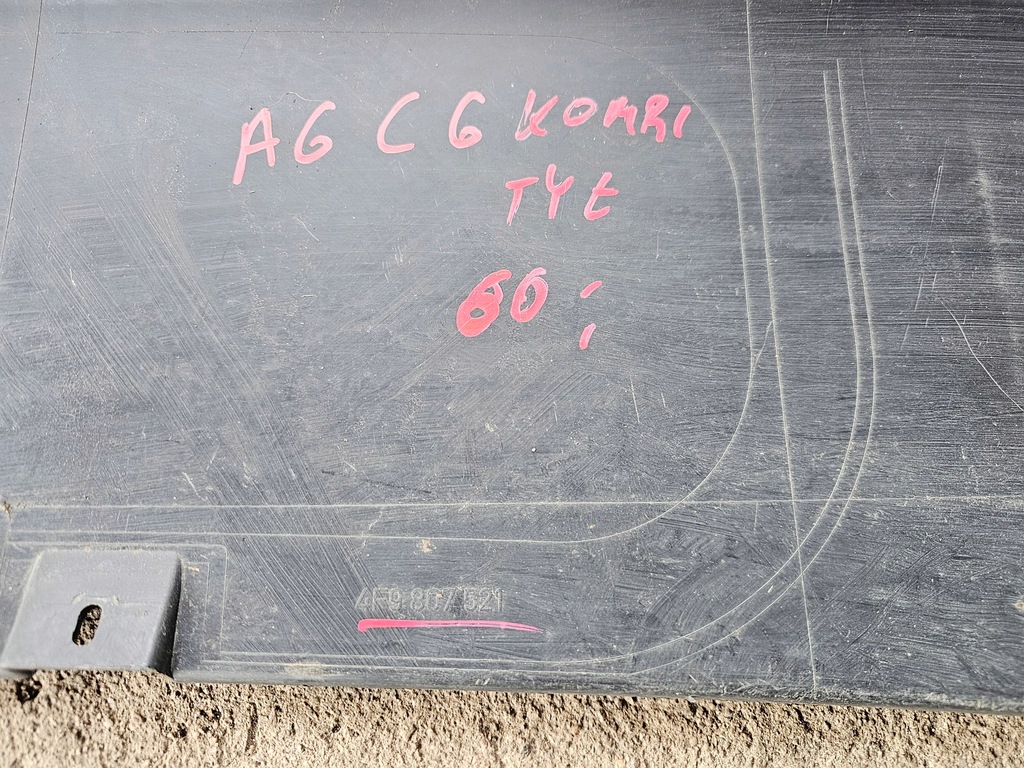 A6 C6 KOMBI
TYŁ
60;
4F9 807 521